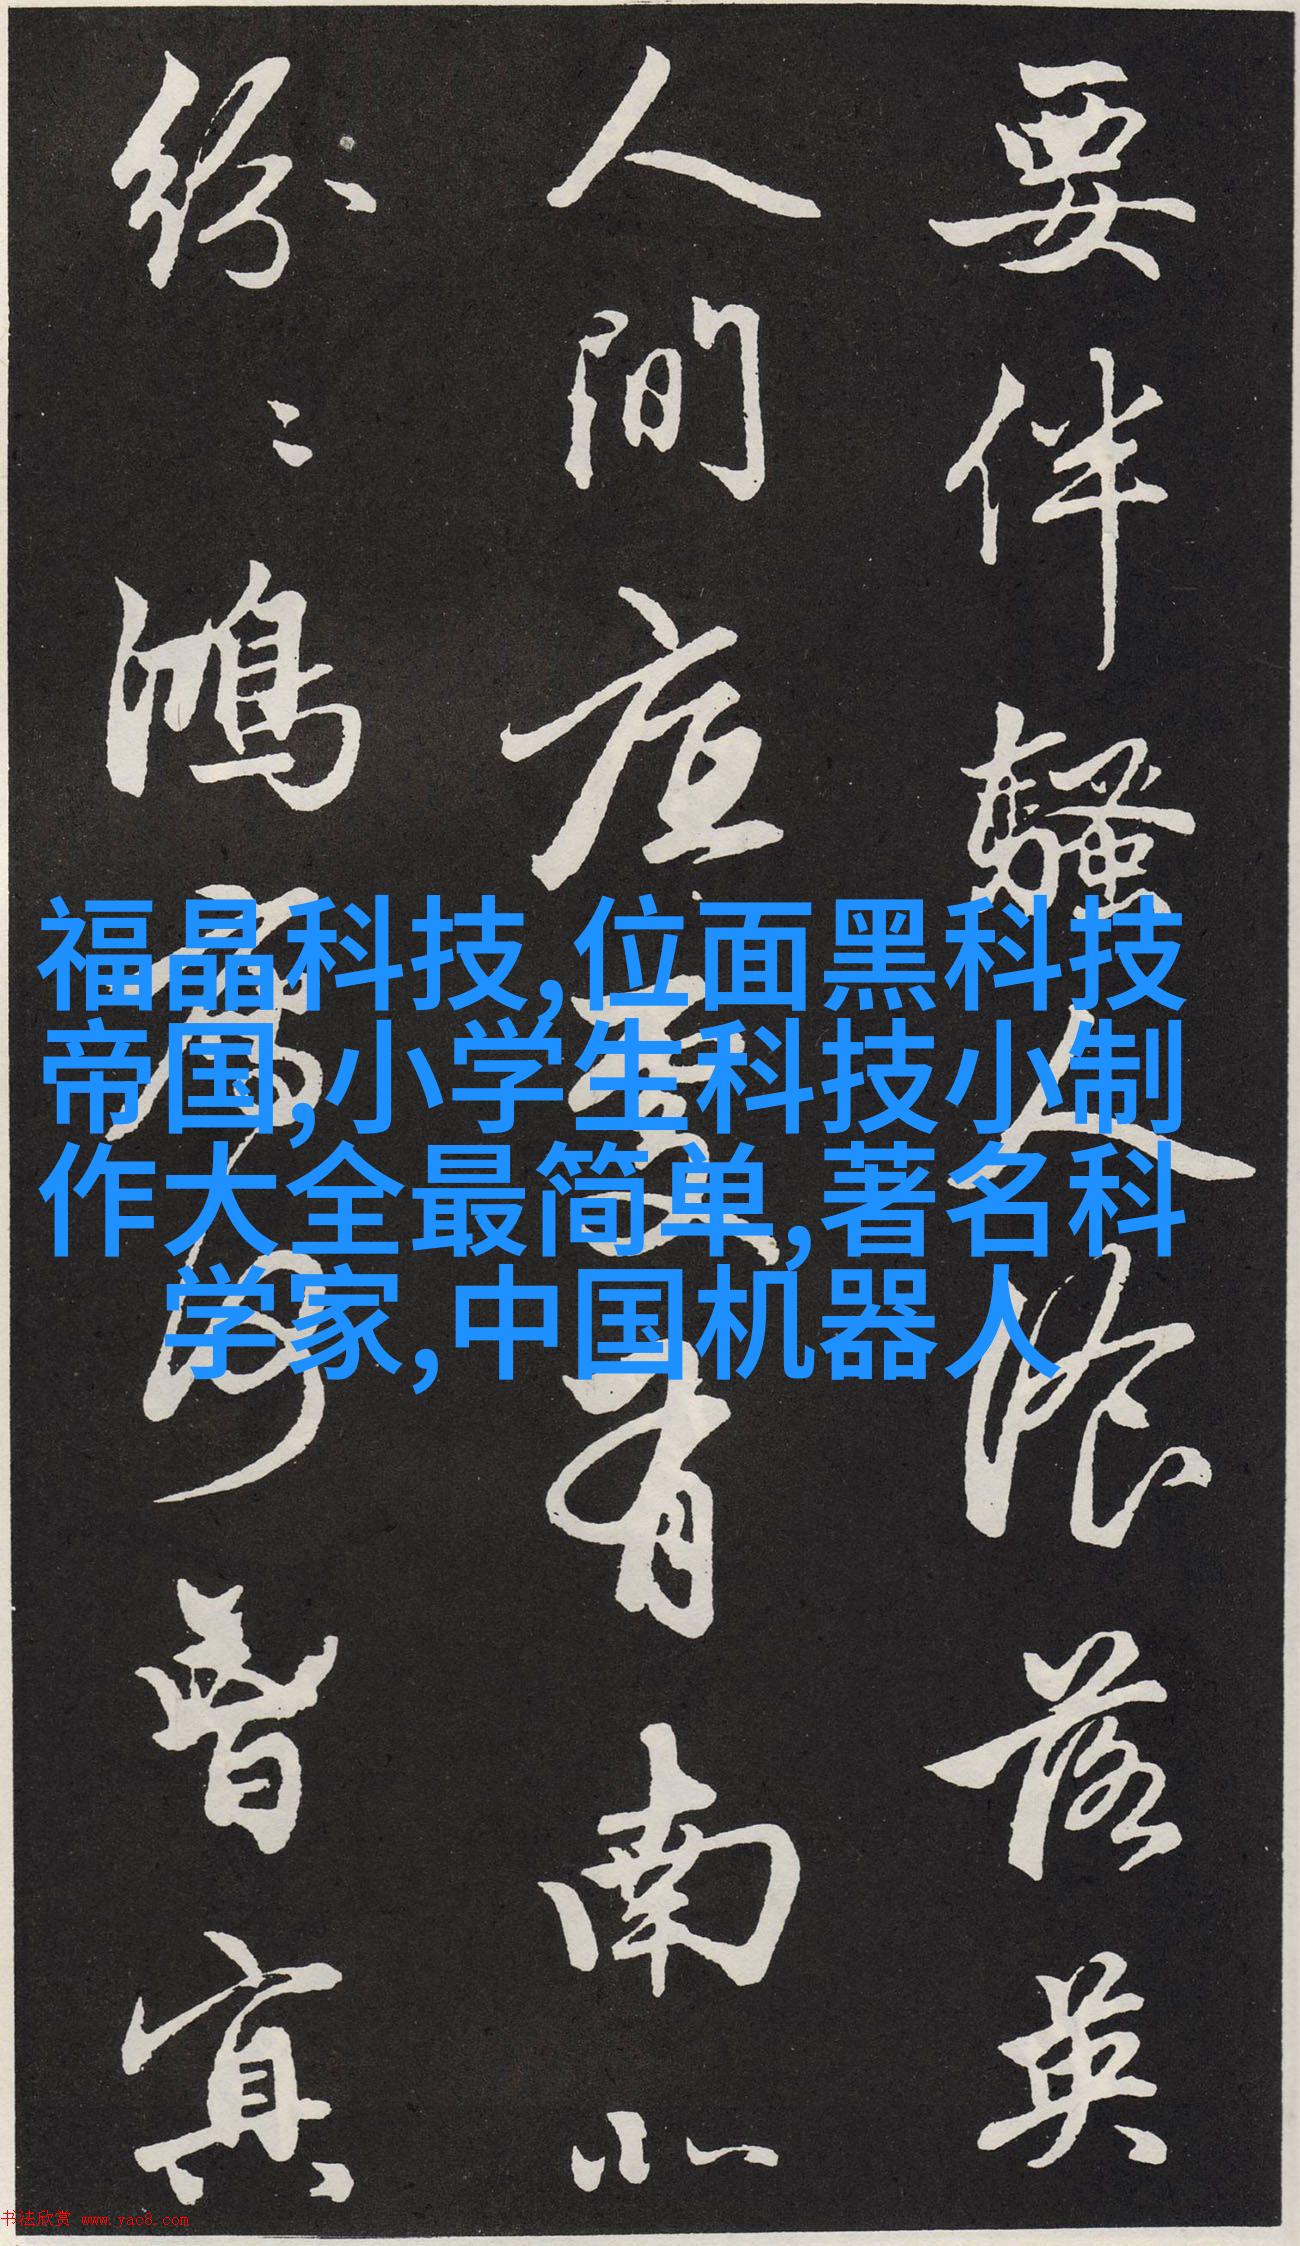 要伴騷人飡落英
人間底處有南北
紛〻鴻雁何曾冥
福晶科技,位面黑科技
帝国,小学生科技小制
作大全最简单,著名科
学家,中国机器人
书法欣赏 www.yac8.com